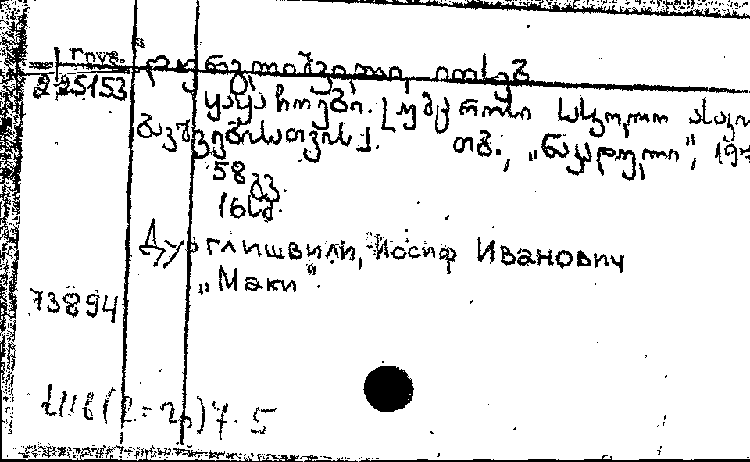 Груз.
225153
დურგლიშვილი, იოსებ
ყაყაჩოები. [უმცროსი სასკოლო ასაკის
ბავშვებისათვის].
თბ., „ნაკადული", 197
58 გვ.
16 სმ.
Дургლишвили, Иосиф Иванович
„Маки".
73894
7.5